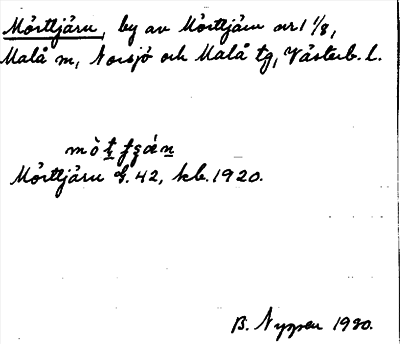 Mörttjärn, by av Mörttjärn nr 1 1/8,
Malå sn, Norsjö och Malå tg, Västerb. l.
Mörttjärn G. 42, kb. 1920.
B. Nyppen 1920.